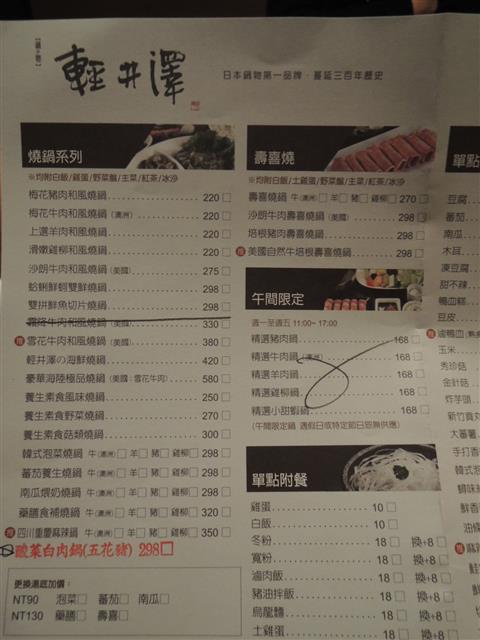 【鍋の物】
輕井澤
日本鍋物第一品牌・蔓延三百年歷史
燒鍋系列
※均附白飯/雞蛋/野菜盤/主菜/紅茶/冰沙
梅花豬肉和風燒鍋 220 □
梅花牛肉和風燒鍋(澳洲) 220 □
上選羊肉和風燒鍋 220 □
滑嫩雞柳和風燒鍋 220 □
沙朗牛肉和風燒鍋(美國) 275 □
蛤蜊鮮蚵雙鮮燒鍋 298 □
雙拼鮮魚切片燒鍋 298 □
霜降牛肉和風燒鍋(美國) 330 □
推 雪花牛肉和風燒鍋(美國) 380 □
輕井澤の海鮮燒鍋 420 □
豪華海陸極品燒鍋(美國:雪花牛肉) 580 □
養生素食風味燒鍋 250 □
養生素食野菜燒鍋 270 □
養生素食菇類燒鍋 300 □
韓式泡菜燒鍋 牛(澳洲)□ 羊□ 豬□ 雞柳□ 298 □
蕃茄養生燒鍋 牛(澳洲)□ 羊□ 豬□ 雞柳□ 298 □
南瓜煨奶燒鍋 牛(澳洲)□ 羊□ 豬□ 雞柳□ 298 □
藥膳食補燒鍋 牛(澳洲)□ 羊□ 豬□ 雞柳□ 320 □
推 四川重慶麻辣鍋 牛(澳洲)□ 羊□ 豬□ 雞柳□ 350 □
酸菜白肉鍋(五花豬) 298□
更換湯底加價:
NT90 泡菜□ 蕃茄□ 南瓜□
NT130 藥膳□ 壽喜□
壽喜燒
※均附白飯/土雞蛋/野菜盤/主菜/紅茶/冰沙
壽喜燒鍋 牛(澳洲)□ 羊□ 豬□ 雞柳□ 270 □
沙朗牛肉壽喜燒鍋(美國) 298 □
培根豬肉壽喜燒鍋 298 □
推 美國自然牛培根壽喜燒鍋 298 □
午間限定
週一至週五 11:00~17:00
精選豬肉鍋 168 □
精選牛肉鍋(澳洲) 168 □
精選羊肉鍋 168 □
精選雞柳鍋 168 □
精選小甜蝦鍋 168 □
(午間限定鍋 遇假日或特定節日恕無供應)
單點附餐
雞蛋 10 □
白飯 10 □
冬粉 18 □ 換+8 □
寬粉 18 □ 換+8 □
滷肉飯 18 □ 換+8 □
豬油拌飯 18 □ 換+8 □
烏龍麵 18 □ 換+8 □
土雞蛋 18 □ 換+8 □
單點
豆腐
蕃茄
南瓜
木耳
凍豆腐
甜不辣
鴨血糕
豆皮
推 滷鴨血(熟食
玉米
秀珍菇
金針菇
炸芋頭
新竹貢丸
大蕃薯
手打香
韓式泡
蟳味
鮮香
油條
推 麻辣